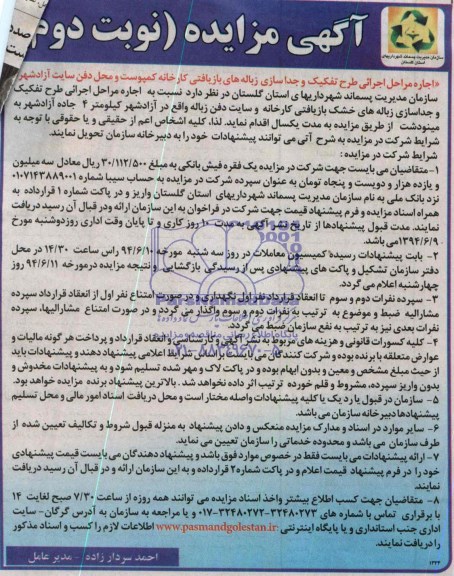 آگهی مزایده (نوبت دوم
سازمان مدیریت پسماند شهرداریهای
استان گلستان
«اجاره مراحل اجرائی طرح تفکیک و جداسازی زباله های بازیافتی کارخانه کمپوست و محل دفن سایت آزادشهر»
سازمان مدیریت پسماند شهرداریهای استان گلستان در نظر دارد نسبت به اجاره مراحل اجرائی طرح تفکیک
و جداسازی زباله های خشک بازیافتی کارخانه و سایت دفن زباله واقع در آزادشهر کیلومتر ۴ جاده آزادشهر به
مینودشت از طریق مزایده به مدت یکسال اقدام نماید. لذا، کلیه اشخاص اعم از حقیقی و یا حقوقی با توجه به
شرایط شرکت در مزایده به شرح آتی می توانند پیشنهادات خود را به دبیرخانه سازمان تحویل نمایند.
شرایط شرکت در مزایده :
۱-متقاضیان می بایست جهت شرکت در مزایده یک فقره فیش بانکی به مبلغ ۳۰/۱۱۲/۵۰۰ ریال معادل سه میلیون
و یازده هزار و دویست و پنجاه تومان به عنوان سپرده شرکت در مزایده به حساب سیبا شماره ۰۱۰۷۱۴۳۸۸۹۰۰۱
نزد بانک ملی به نام سازمان مدیریت پسماند شهرداریهای استان گلستان واریز و در پاکت شماره ۱ قرارداده به
همراه اسناد مزایده و فرم پیشنهاد قیمت جهت شرکت در فراخوان به این سازمان ارائه ودر قبال آن رسید دریافت
نمایند. مدت قبول پیشنهادها از تاریخ نشر آگهی به مدت ۱۰ روز کاری و تا پایان وقت اداری روز دوشنبه مورخ
۱۳۹۴/۶/۹ می باشد.
۲- بابت پیشنهادات رسیده کمیسیون معاملات در روز سه شنبه مورخه ۹۴/۶/۱۰ راس ساعت ۱۴/۳۰ در محل
دفتر سازمان تشکیل و پاکت های پیشنهادی پس از رسیدگی بازگشایی و نتیجه مزایده در مورخه ۹۴/۶/۱۱ روز
چهارشنبه اعلام می گردد.
۳- سپرده نفرات دوم و سوم تا انعقاد قرارداد نفر اول نگهداری و در صورت امتناع نفر اول از انعقاد قرارداد سپرده
مشارالیه ضبط و موضوع به ترتیب به نفرات دوم و سوم واگذار می گردد و در صورت امتناع مشارالیها، سپرده
نفرات بعدی نیز به ترتیب به نفع سازمان ضبط می گردد.
۴- کلیه کسورات قانونی و هزینه های مربوط به نشر آگهی و کارشناسی و انعقاد قرارداد و پرداخت هر گونه مالیات و
عوارض متعلقه با برنده بوده و شرکت کنندگان می بایست اعلامی پیشنهاد دهند و پیشنهادات باید
از حیث مبلغ مشخص و معین و بدون ابهام بوده و در پاکت لاک و مهر شده تسلیم شود و به پیشنهادات مخدوش و
بدون واریز سپرده، مشروط و قلم خورده ترتیب اثر داده نخواهد شد. بالاترین پیشنهاد برنده مزایده خواهد بود.
۵- سازمان در قبول یا رد یک یا کلیه پیشنهادات واصله مختار است و محل دریافت اسناد امور مالی و محل تسلیم
پیشنهادها دبیرخانه سازمان می باشد.
۶- سایر موارد در اسناد و مدارک مزایده منعکس و دادن پیشنهاد به منزله قبول شروط و تکالیف تعیین شده از
طرف سازمان می باشد و محدوده خدماتی را سازمان تعیین می نماید.
۷- ارائه پیشنهادات می بایست فقط در خصوص موارد فوق باشد و پیشنهاد دهندگان می بایست قیمت پیشنهادی
خود را در فرم پیشنهاد قیمت اعلام و در پاکت شماره ۲ قرارداده و به این سازمان ارائه و در قبال آن رسید دریافت
نمایند.
۸- متقاضیان جهت کسب اطلاع بیشتر واخذ اسناد مزایده می توانند همه روزه از ساعت ۷/۳۰ صبح لغایت ۱۴
با برقراری تماس با شماره های ۳۲۴۸۰۲۷۳-۳۲۴۸۰۲۷۲-۰۱۷ و یا مراجعه به سازمان به آدرس گرگان- سایت
اداری جنب استانداری و یا پایگاه اینترنتی www.pasmandgolestan.ir اطلاعات لازم را کسب و اسناد مذکور
را دریافت نمایند.
احمد سردار زاده - مدیر عامل